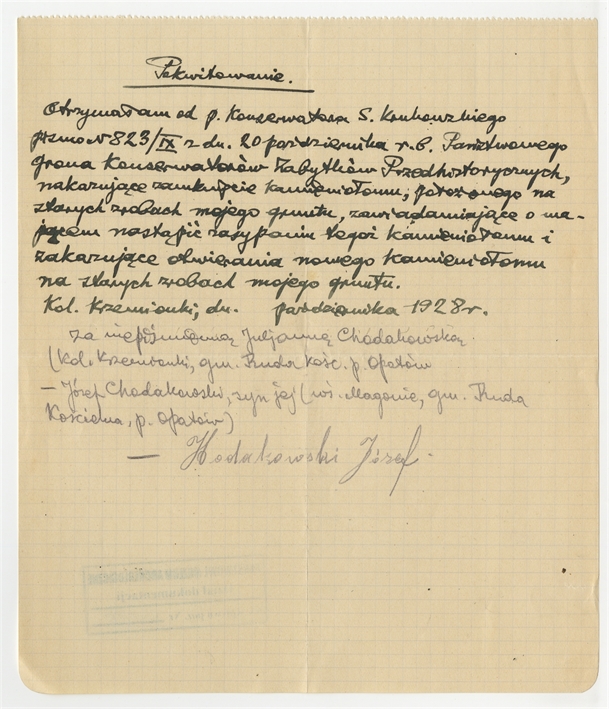 Pokwitowanie.
Otrzymałam od p. Konserwatora S. Krukowskiego
pismo N 823/IX z dn. 20 października r. b. Państwowego
grona Konserwatorów Zabytków Przedhistorycznych,
nakazujące zamknięcie kamieniołomu, położonego na
starych zrobach mojego gruntu, zawiadamiające o ma-
jącem nastąpić zasypaniu tegoż kamieniołomu i
zakazujące otwierania nowego kamieniołomu
na starych zrobach mojego gruntu.
Kol. Krzemionki, dn. października 1928 r.
za niepiśmienną Juljannę Chodakowską
(Kol. Krzemionki, gm. Ruda Kośc. p. Opatów
— Józef Chodakowski, syn jej (wś. Magonie, gm. Ruda
Kościelna, p. Opatów)
— Hodakowski Józef.